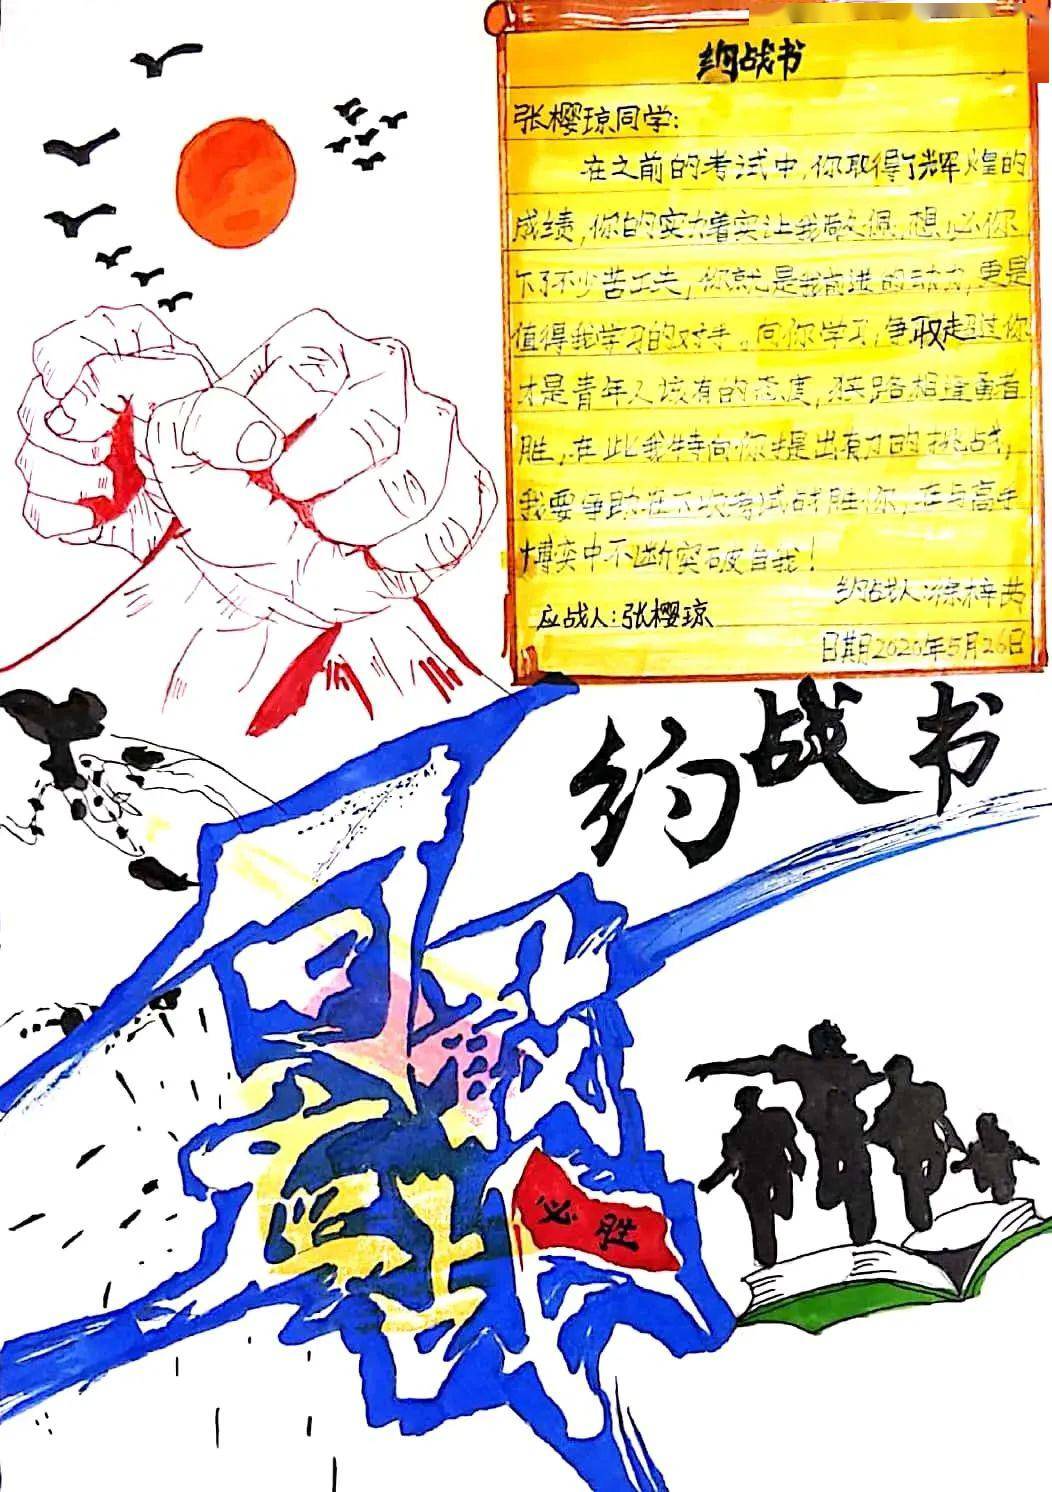 约战书
张樱琼同学:
在之前的考试中,你取得了辉煌的
成绩,你的实力着实让我敬佩,想必你
下了不少苦工夫,你就是我前进的动力,更是
值得我学习的对手。向你学习,争取超过你
才是青年人该有的态度,狭路相逢勇者
胜,在此我特向你提出有力的挑战,
我要争取在下次考试战胜你,在与高手
博弈中不断突破自我!
约战人:徐梓
应战人:张樱琼
日期2020年5月26日
约战书
必胜